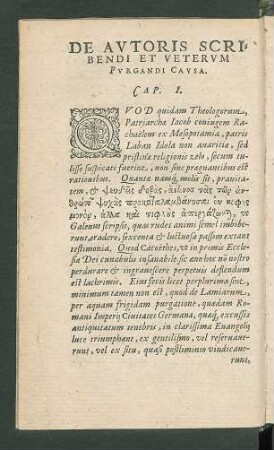 DE AVTORIS SCRI
BENDI ET VETERVM
PVRGANDI CAVSA.
CAP. I.
QVOD quidam Theologorum,
Patriarchæ Iacob coniugem Ra-
chaëlem ex Mesopotamia, patris
Laban Idola non auaritia, sed
pristinæ religionis zelo, secum tu-
lisse suspicati fuerint, non sine pregnantibus est
rationibus. Quanta namq; molis sit, prauita-
tem, & ψευδεῖς δόξας,
Galenus scripsit, quas rudes animi semel imbibe-
runt, eradere, sexcenta & luctuosa passim extant
testimonia. Quod Cacoëthes, vt in prima Eccle-
siæ Dei cunabulis insanabile, sic an hoc nō nostro
perdurare & ingrauescere perpetuis deflendum
est lacrimis. Eius fœcis licet perplurima sint,
minimum tamen non est, quod de Lamiarum,
per aquam frigidam purgatione, quædam Ro-
mani Imperij Ciuitates Germanæ, quæq; excussis
antiquitatum tenebris, in clarissima Euangelij
luce triumphant, ex gentilismo, vel reserua-
runt, vel ex situ, quasi postliminio vindicaue-
runt,